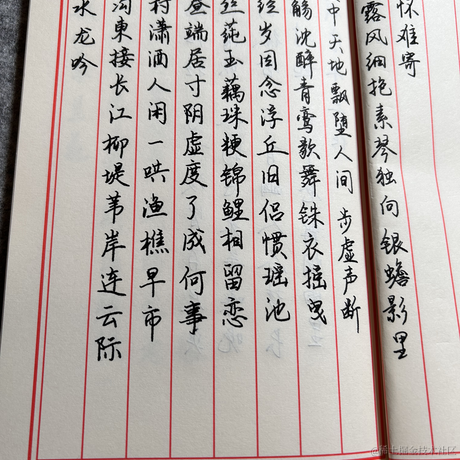 怀难寄
露风细抱素琴独向银蟾影里
中天地飘堕人间步虚声断
觞沈醉青鸾歌舞铢衣摇曳
经岁因念浮丘旧侣惯瑶池
丝莼玉藕珠粳锦鲤相留恋
昼端居寸阴虚度了成何事
村潇洒人闲一哄渔樵早市
沟東接长江柳堤苇岸连云际
水龙吟
@稀土掘金技术社区